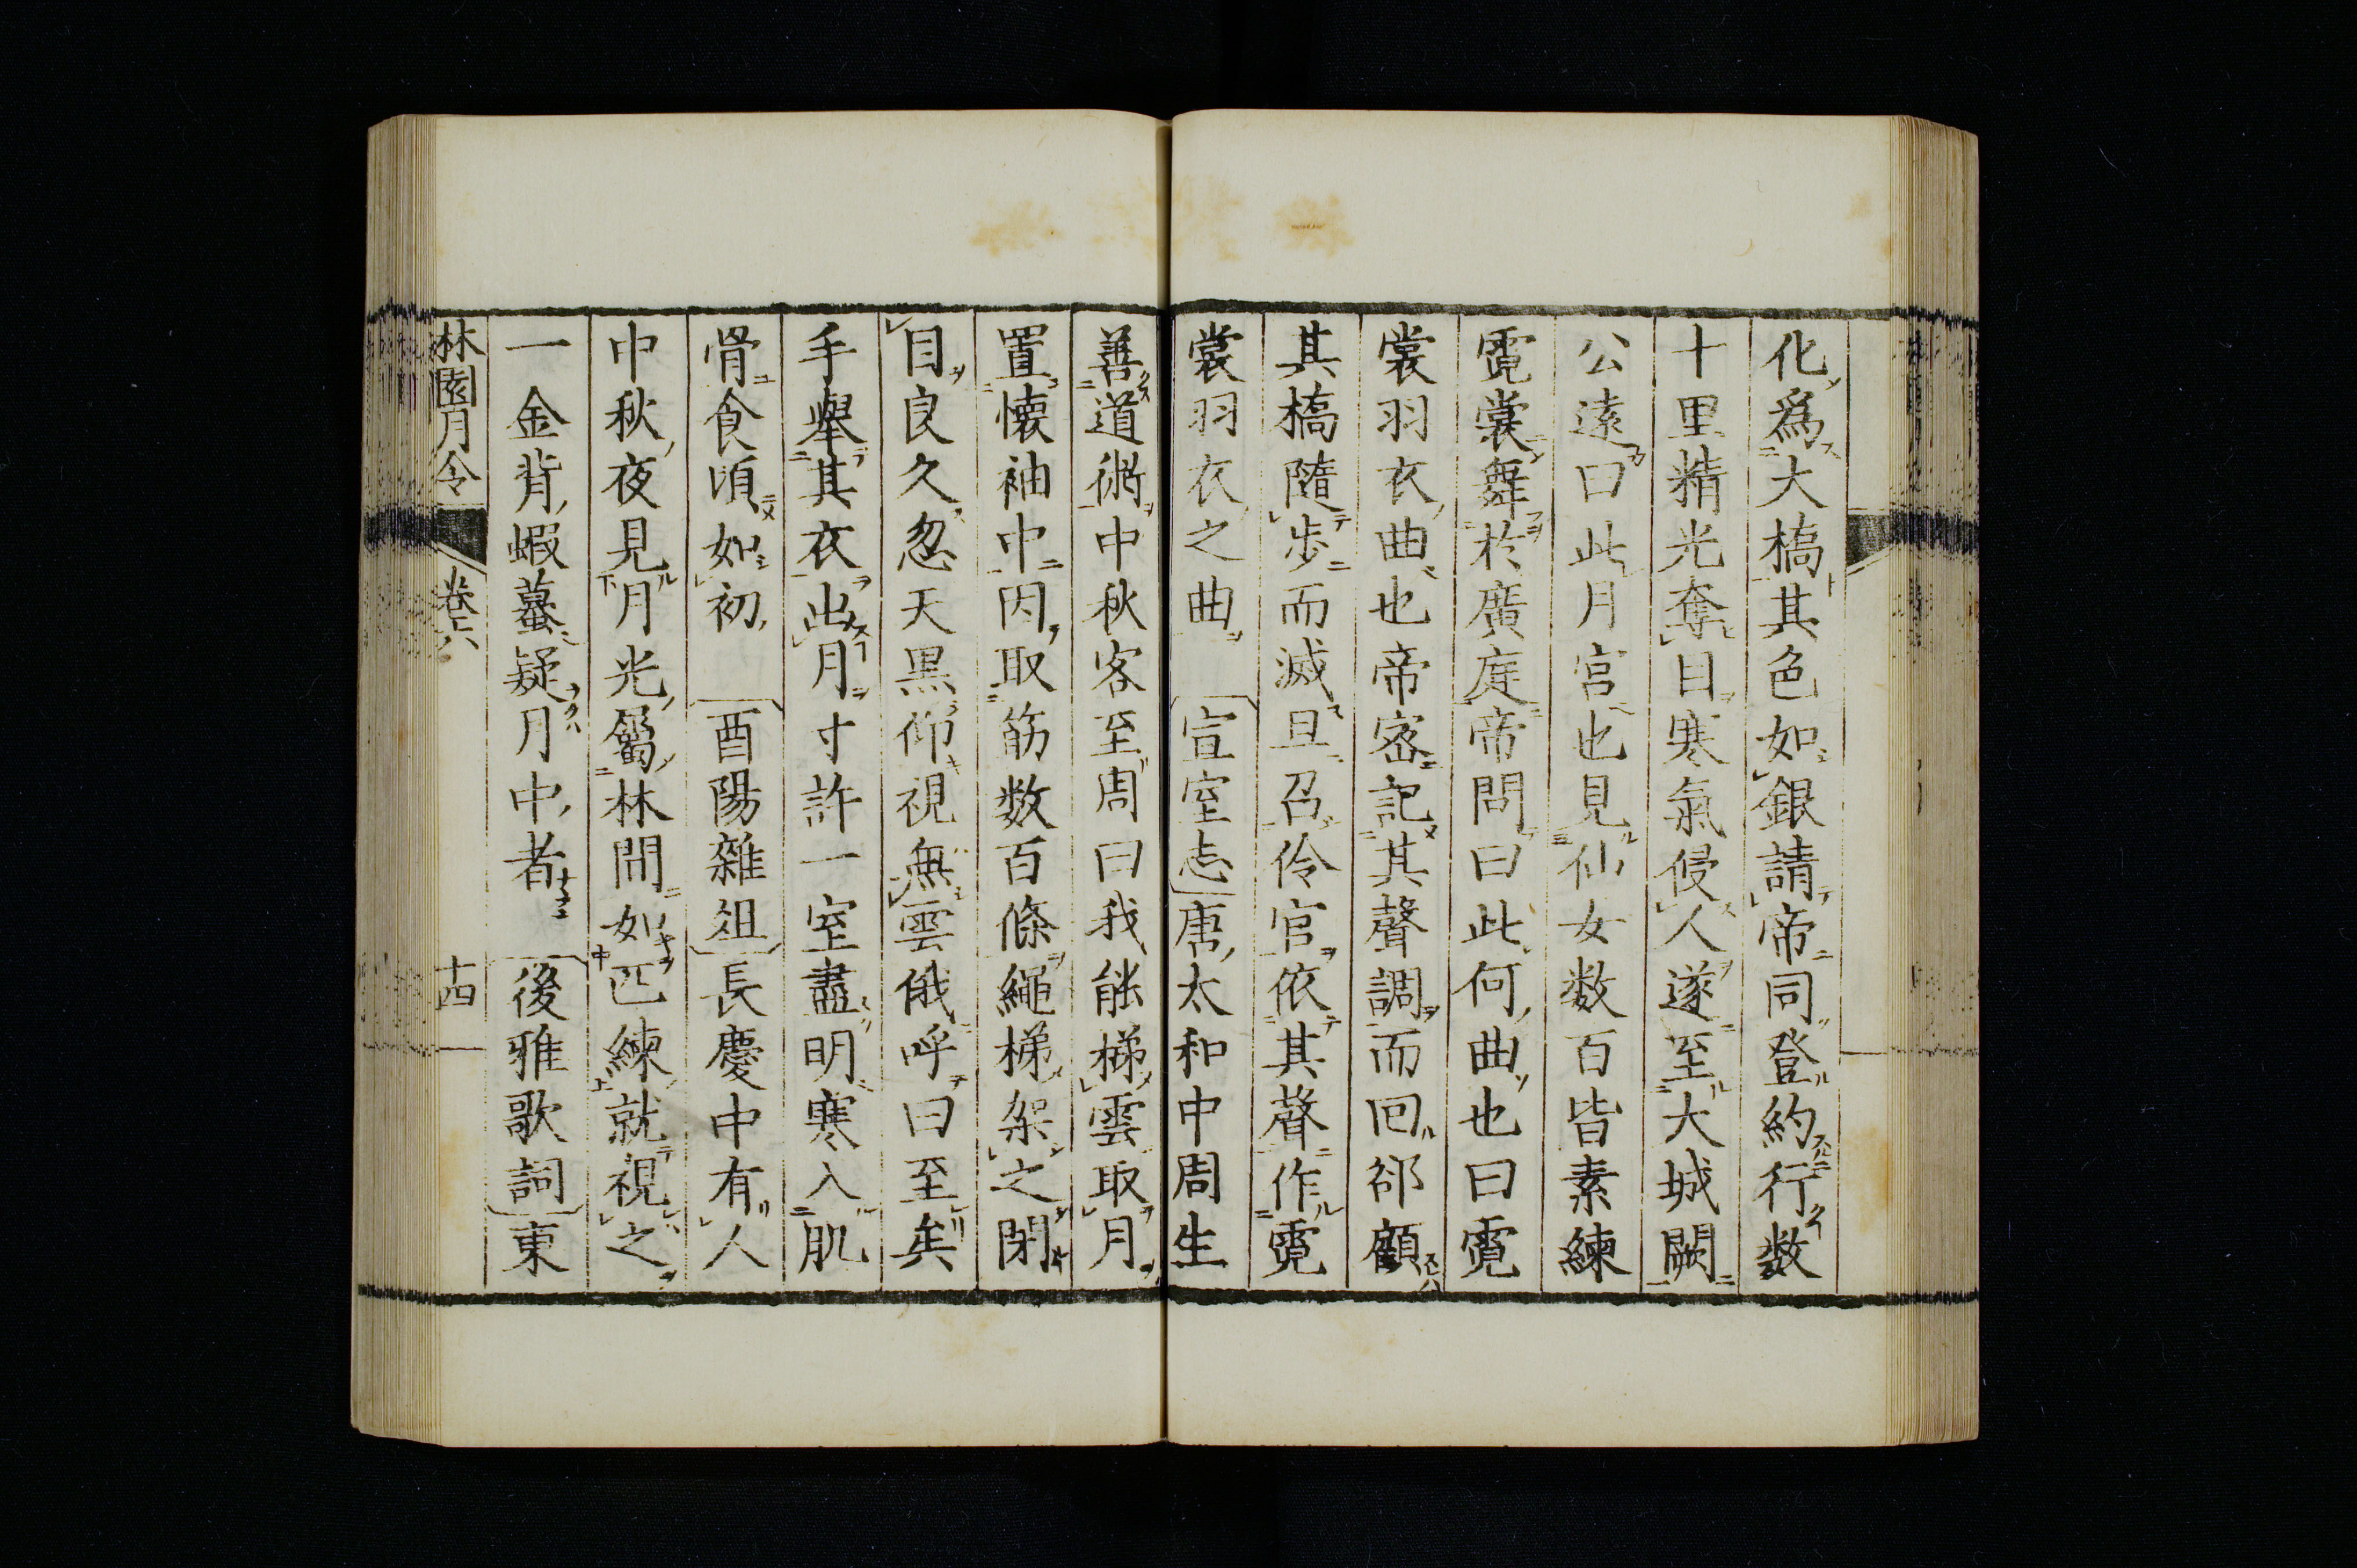 化爲大橋其色如銀請帝同登約行数
十里精光奪目寒氣侵人遂至大城闕
公遠曰此月宮也見仙女数百皆素練
霓裳舞於廣庭帝問曰此何曲也曰霓
裳羽衣曲也帝宻記其聲調而回卻顧
其橋隨歩而滅旦召伶官依其聲作霓
裳羽衣之曲 宣室志 唐太和中周生
善道術中秋客至周曰我能梯雲取月
置懐袖中因取筋数百條繩梯架之閉
目良久忽天黒仰視無雲俄呼曰至矣
手舉其衣出月寸許一室盡明寒入肌
骨食頃如初 酉陽雜俎 長慶中有人
中秋夜見月光屬林間如匹練就視之
一金背蝦蟇疑月中者 後雅歌詞 東
林園月令 卷六 十四